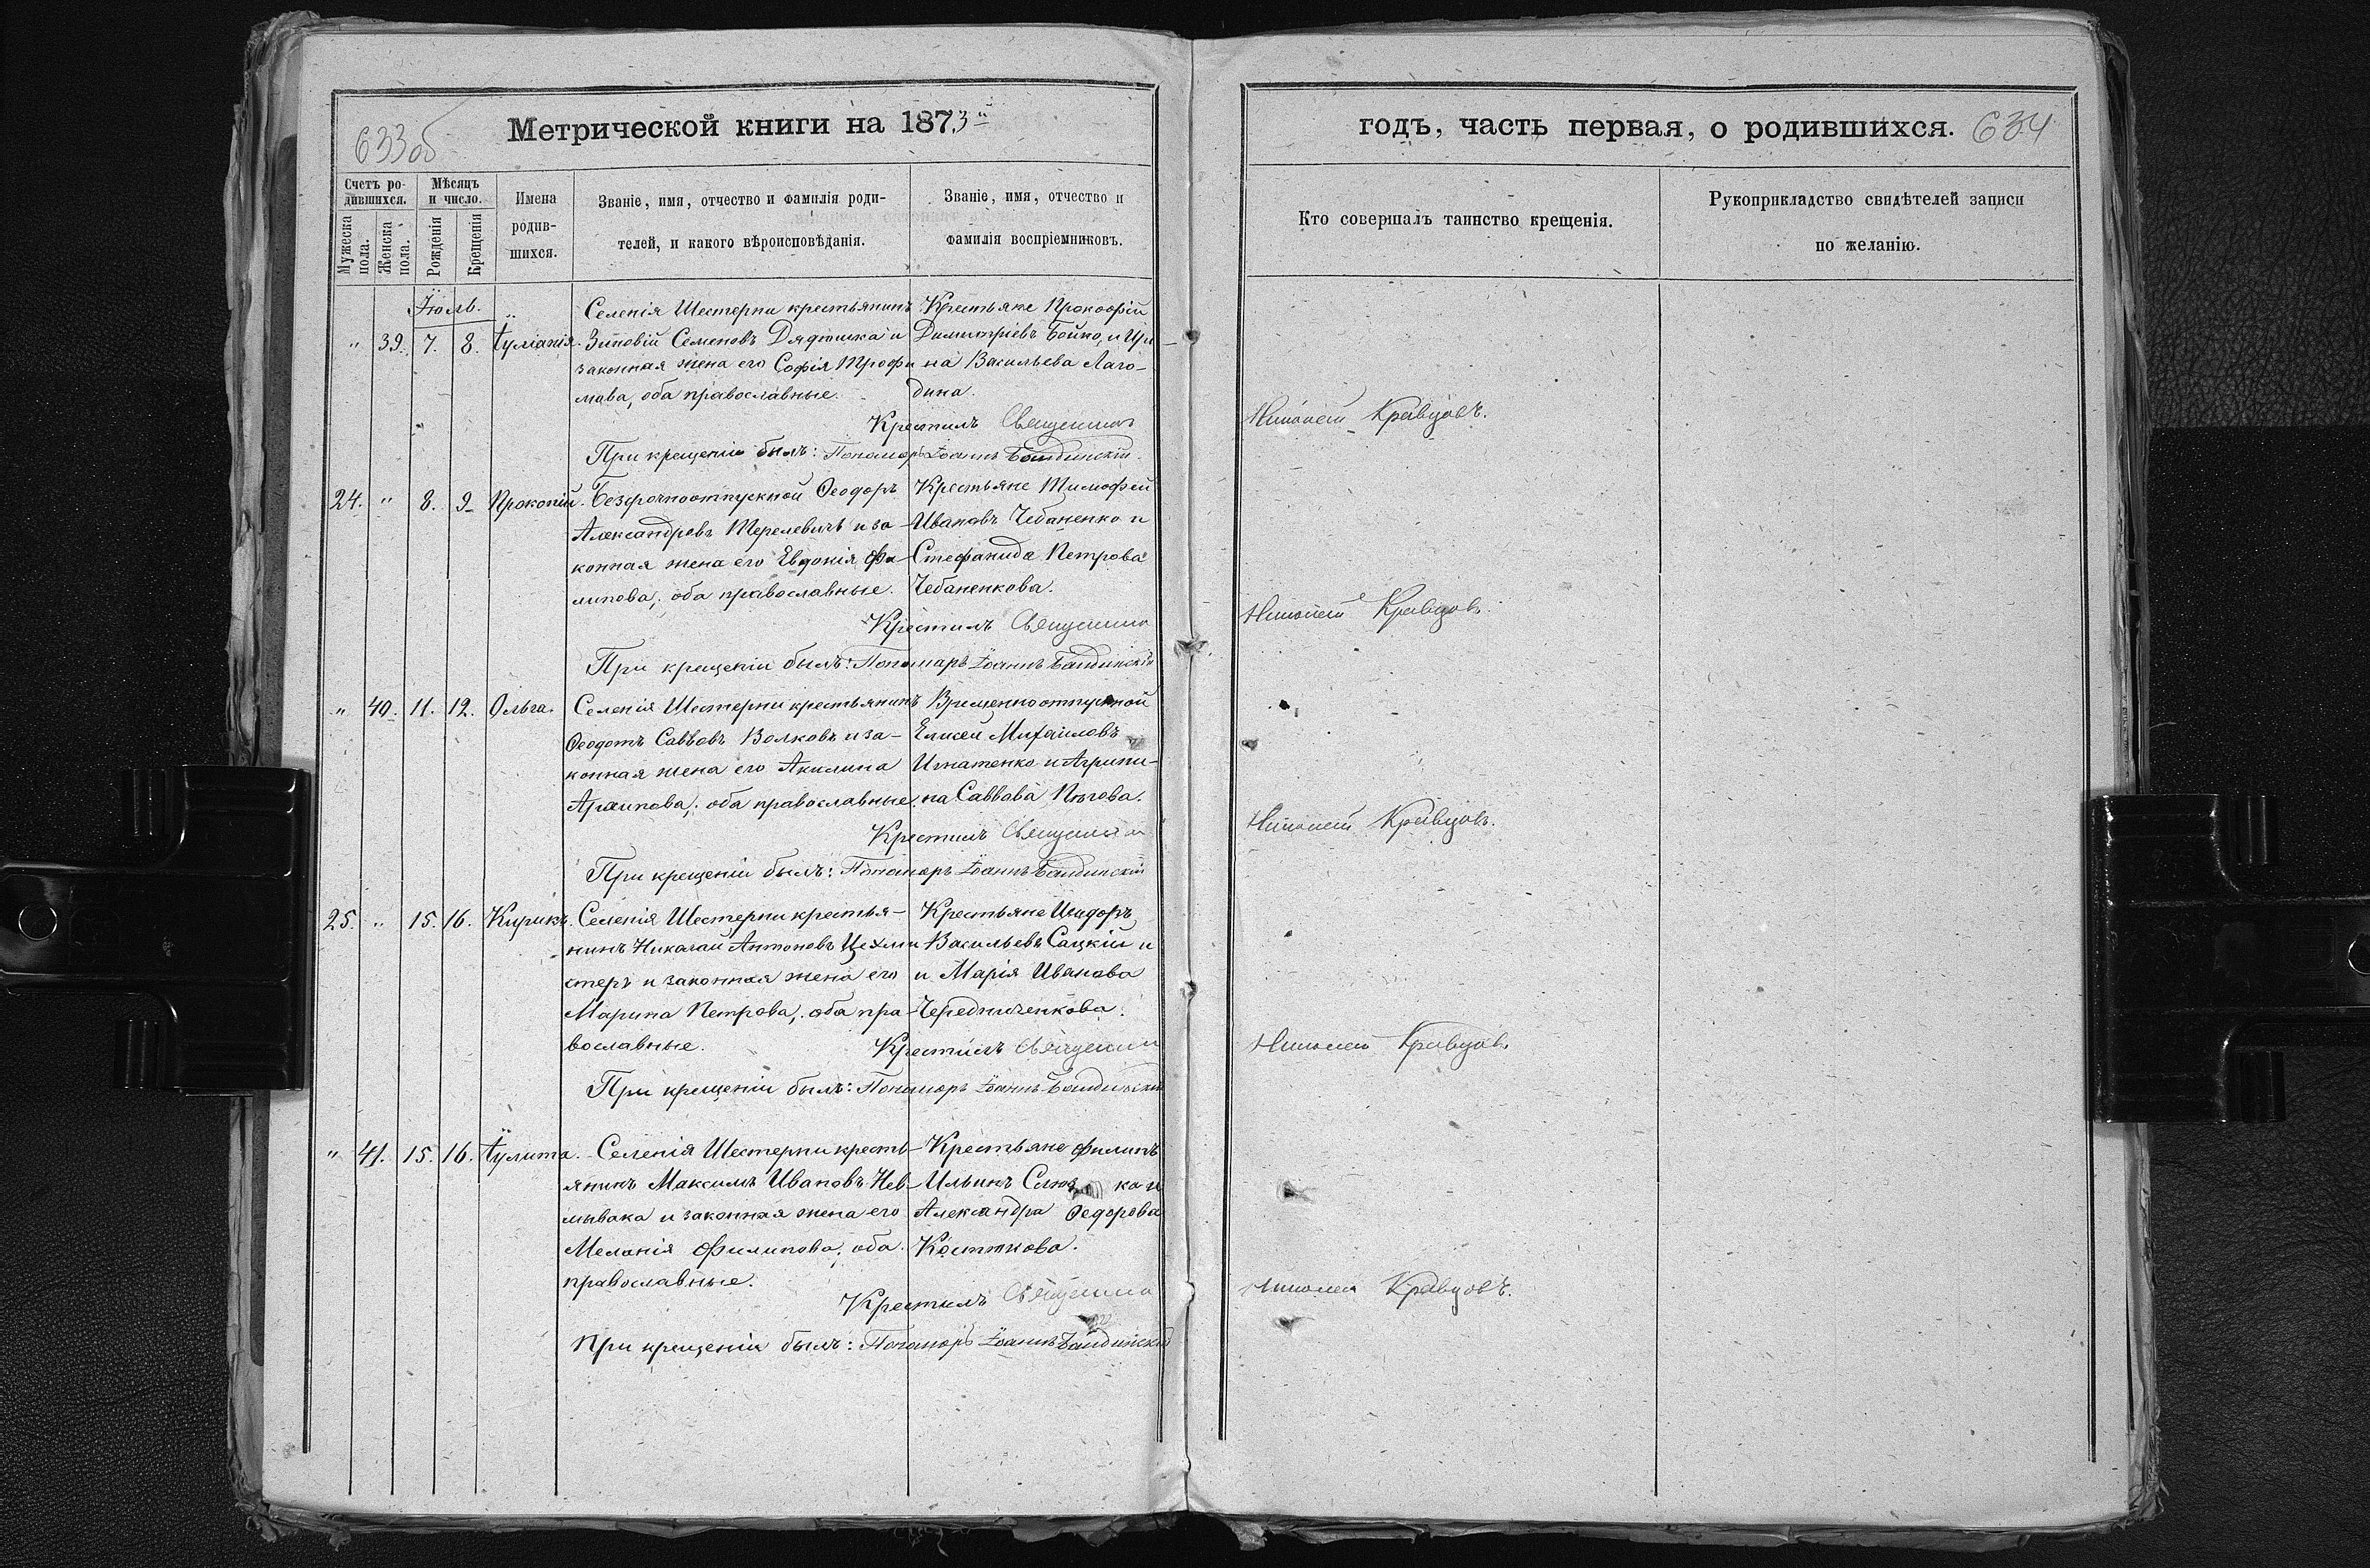 633об
Метрической книги на 1873й
Счетъ родившихся.
Мѣсяцъ и число.
Мужеска пола.
Женска пола.
Рожденія
Крещенія
Имена родившихся.
Званіе, имя, отчество и фамилія роди-
телей, и какого вѣроисповѣданія.
Званіе, имя, отчество и
фамилія воспріемниковъ.
Іюль.
" 39. 7. 8. Іуліанія.
Селенія Шестерни крестьянинъ
Зиновій Семеновъ Дядишка и
законная жена его Софія Трофи
мова, оба православные.
Крестьяне Прокофій
Димитріевъ Бойко, и Ири-
на Васильева Лаго-
дина.
Крестилъ Священник
При крещеніи былъ: Пономарь Іоаннъ
24. " 8. 9. Прокопій.
Безсрочноотпускной Ѳеодоръ
Александровъ Терелевичъ и за-
конная жена его Евдокія Фи-
липова, оба православные.
Крестьяне Тимофей
Ивановъ Чебаненко и
Стефанида Петрова
Чебаненкова.
Крестилъ Священник
При крещеніи былъ: Пономарь Іоаннъ
" 40. 11. 12. Ольга.
Селенія Шестерни крестьянинъ
Ѳеодотъ Саввовъ Волковъ и за-
конная жена его Акилина
Архипова, оба православные.
Временноотпускной
Елисей Михаиловъ
Игнатенко и Агрипи-
на Саввова Пѣгова.
Крестилъ Священник
При крещеніи былъ: Пономарь Іоаннъ
25. " 15. 16. Кирикъ.
Селенія Шестерни крестья-
нинъ Николай Антоновъ Цехми
стеръ и законная жена его
Марина Петрова, оба пра-
вославные.
Крестьяне Исидоръ
Васильевъ Сацкій и
и Марія Иванова
Чередниченкова.
Крестилъ Священник
При крещеніи былъ: Пономарь Іоаннъ
" 41. 15. 16. Іулита.
Селенія Шестерни кресть-
янинъ Максимъ Ивановъ Нев-
мывака и законная жена его
Меланія Филипова, оба
православные.
Крестьяне Филипъ
Ильинъ ка и
Александра Ѳедорова
Крестилъ Священник
При крещеніи былъ: Пономарь Іоаннъ
годъ, часть первая, о родившихся.
634
Кто совершалъ таинство крещенія.
Рукоприкладство свидѣтелей записи
по желанію.
Николай Кравцовъ.
Николай Кравцовъ.
Николай Кравцовъ.
Николай Кравцовъ.
Николай Кравцовъ.